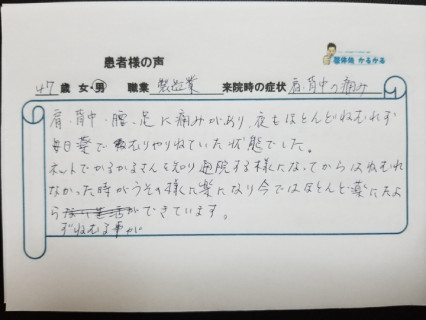 患者様の声
整体院 かるかる
47歳 女・男 職業 製造業 来院時の症状 肩、背中の痛み
肩、背中、腰、足に痛みがあり、夜もほとんどねむれず
毎日薬でねむりやりねていた状態でした。
ネットでかるかるさんを知り通院する様になってからはねむれ
なかった時がうその様に楽になり今ではほとんど薬にたよ
らずねむる事ができています。